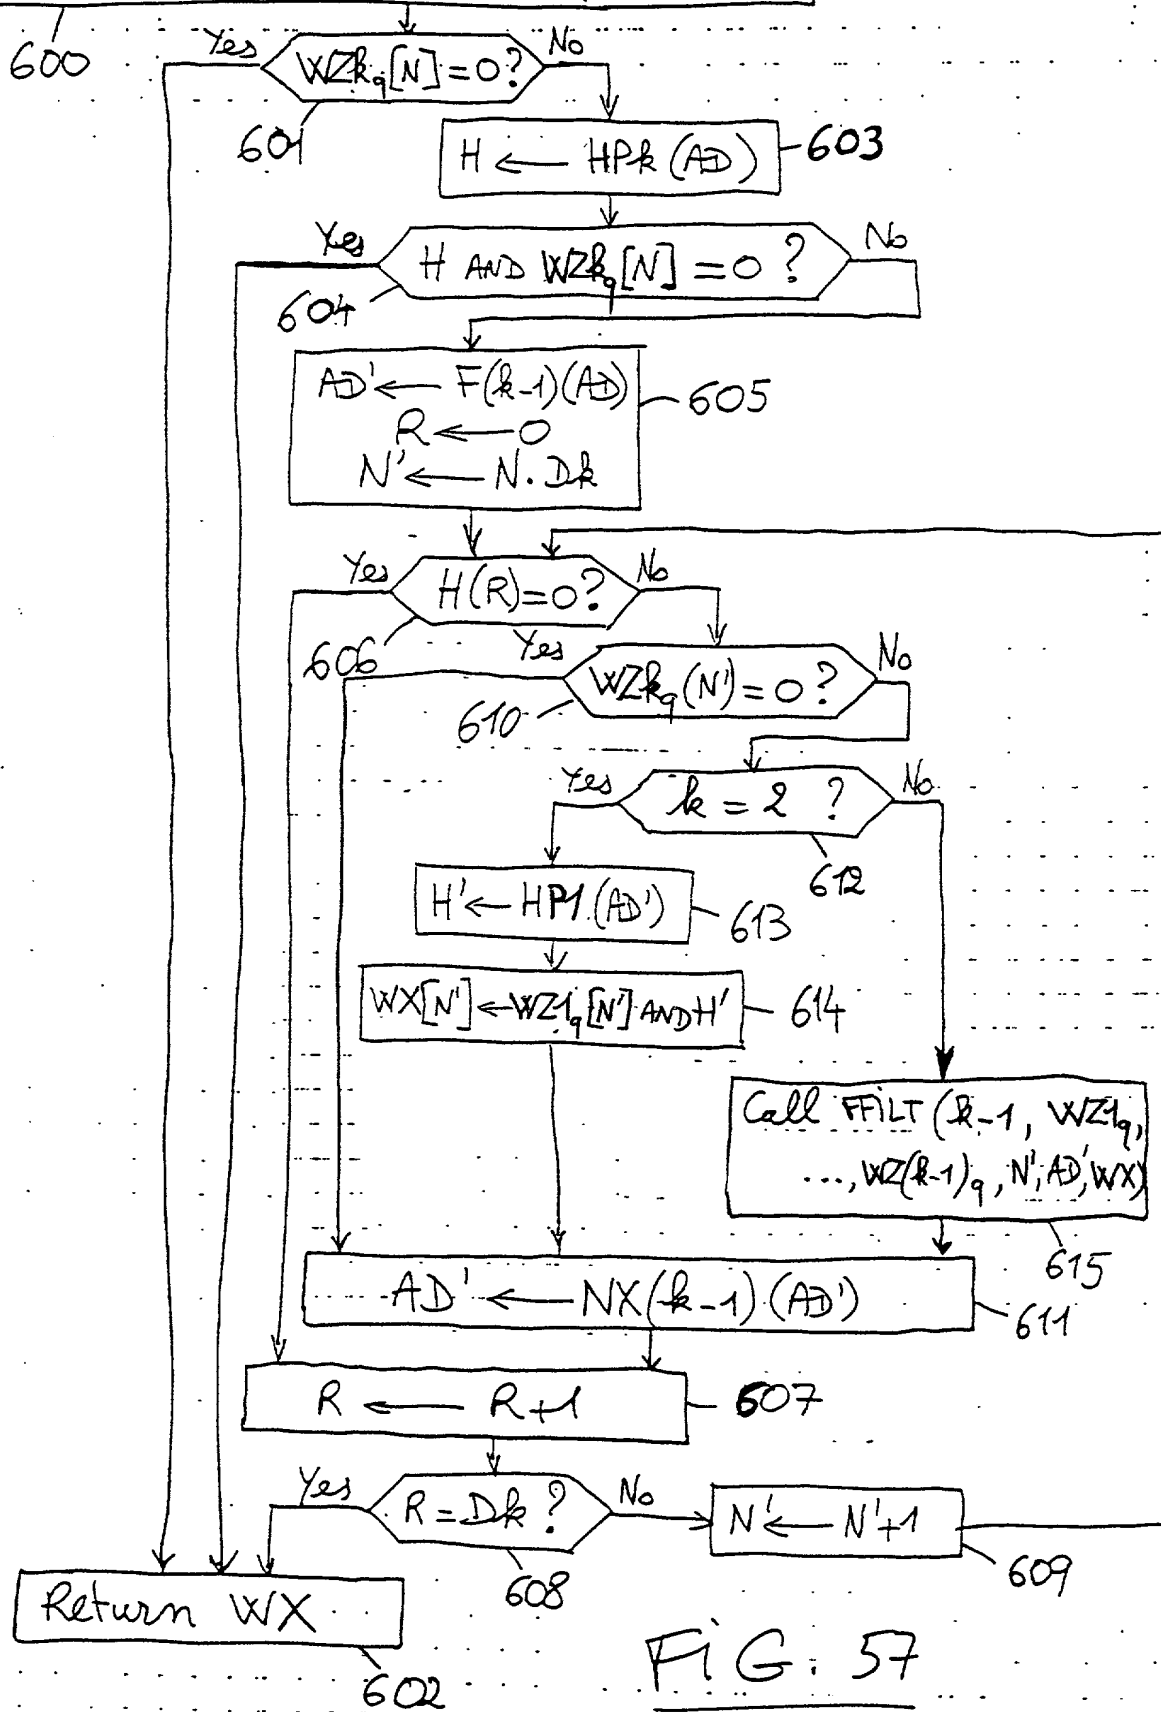 600
Yes WZkq[N]=0? No
601
H ← HPk(AD) 603
Yes H AND WZkq[N]=0? No
604
AD' ← F(k-1)(AD)
R ← 0
N' ← N.Dk
605
Yes H(R)=0? No
606
Yes WZkq(N')=0? No
610
Yes k=2 ? No
612
H' ← HP1.(AD') 613
WX[N'] ← WZ1q[N'] AND H' 614
Call FFiLT(k-1, WZ1q,
..., WZ(k-1)q, N', AD', WX)
615
AD' ← NX(k-1)(AD')
611
R ← R+1 607
Yes R=Dk? No
608
N' ← N'+1
609
Return WX
602
FiG. 57